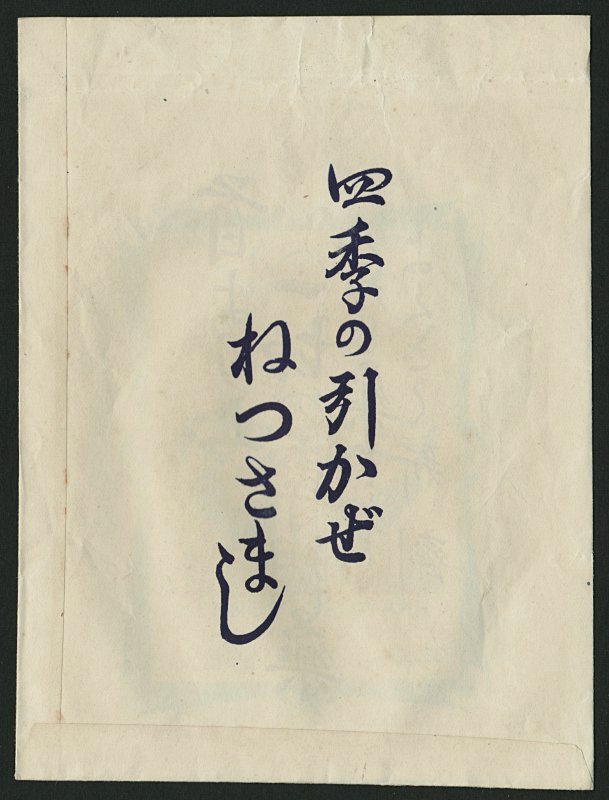 四季の引かぜ
ねつさまし